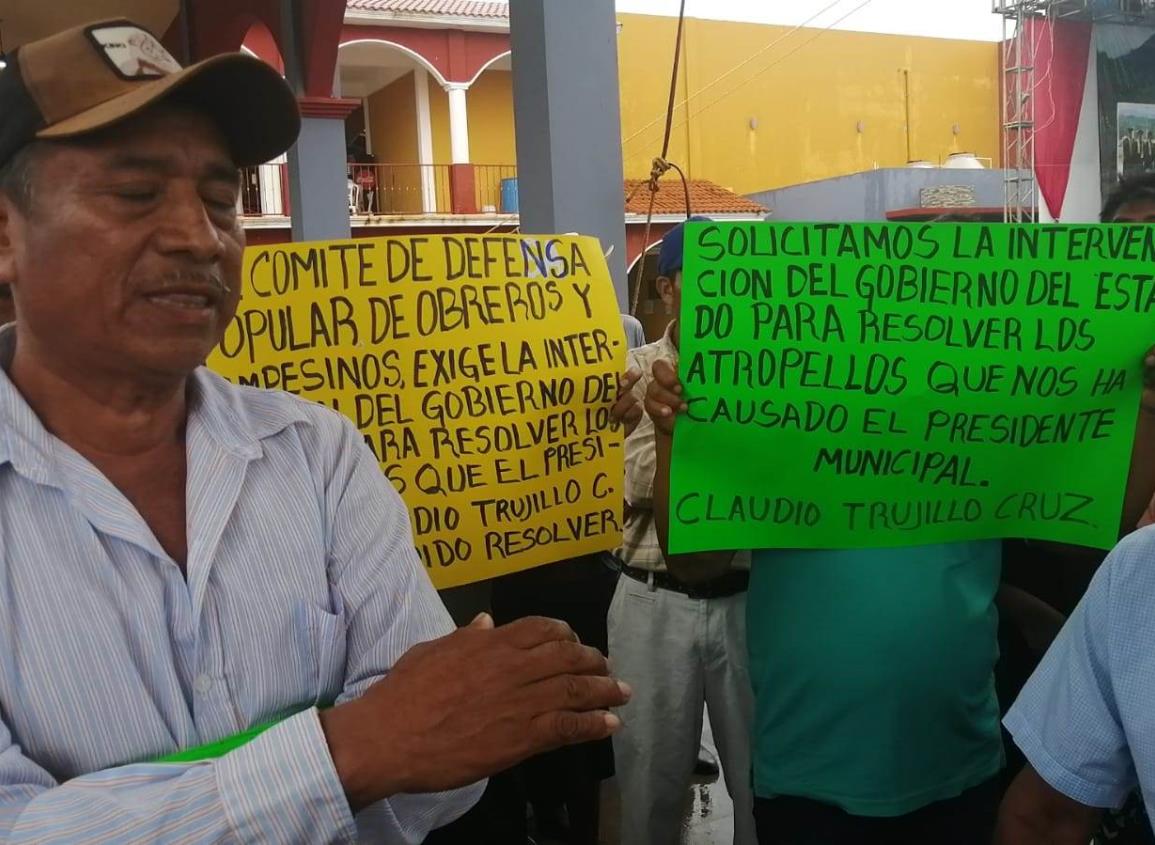 COMITE DE DEFENSA
OPULAR DE OBREROS Y
MPESINOS, EXIGE LA INTER-
DEL GOBIERNO DEL
ARA RESOLVER LOS
S QUE EL PRESI-
DIO TRUJILLO C.
IDO RESOLVER.
SOLICITAMOS LA INTERVEN
CION DEL GOBIERNO DEL ESTA
DO PARA RESOLVER LOS
ATROPELLOS QUE NOS HA
CAUSADO EL PRESIDENTE
MUNICIPAL.
CLAUDIO TRUJILLO CRUZ.